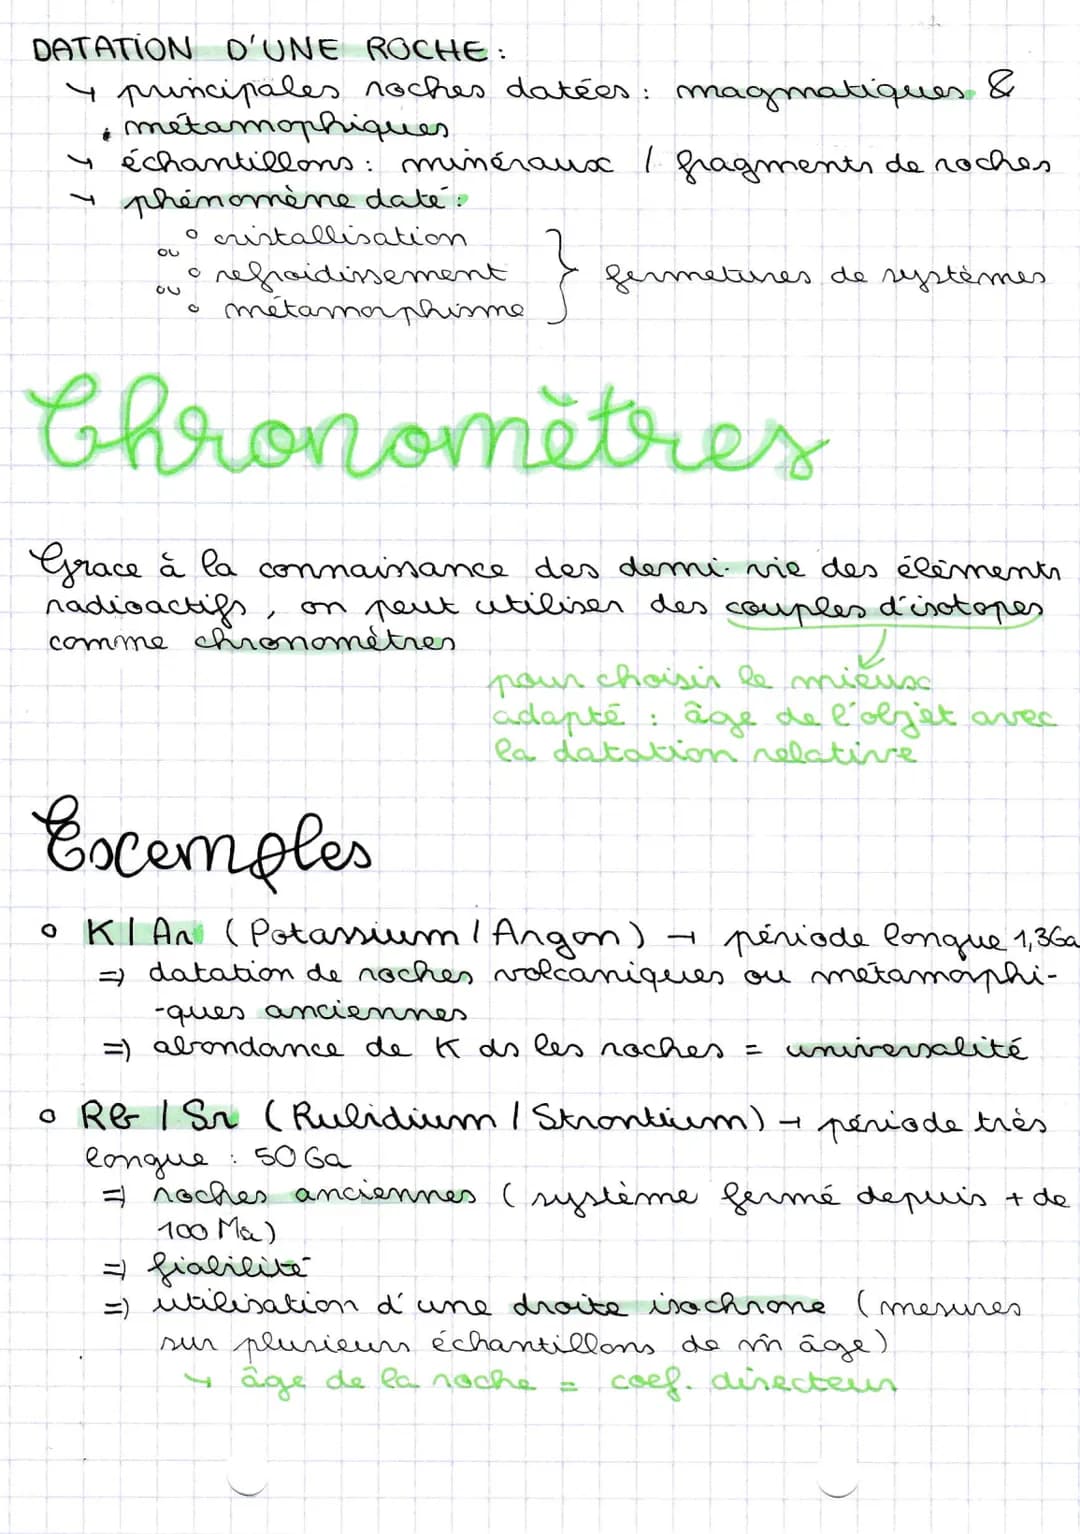 DATATION D'UNE ROCHE :
→ principales roches datées : magmatiques &
métamophiques
→ échantillons : minéraux / fragments de roches
→ phénomène daté :
° cristallisation
ou
° refroidissement } fermetures de systèmes
ou
° métamorphisme
Chronomètres
Grace à la connaissance des demi-vie des éléments
radioactifs, on peut utiliser des couples d'isotopes
comme chronomètres
pour choisir le mieux
adapté : âge de l'objet avec
la datation relative
Exemples
° K / Ar (Potassium / Argon) → période longue 1,3Ga
=> datation de roches volcaniques ou métamorphi-
-ques anciennes
=> abondance de K ds les roches = universalité
° Rb / Sr (Rubidium / Strontium) → période très
longue : 50 Ga
=> roches anciennes (système fermé depuis + de
100 Ma)
=> fiabilité
=> utilisation d'une droite isochrone (mesures
sur plusieurs échantillons de m̂ âge)
→ âge de la roche = coef. directeur